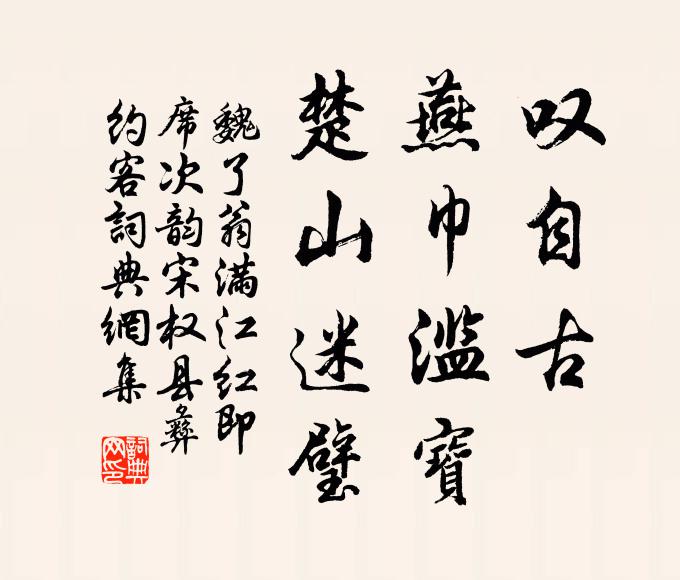 叹自古
燕巾滥寶
楚山迷璧
魏了翁满江红即
席次韵宋权县彝
约客詞典網集
詞典网印